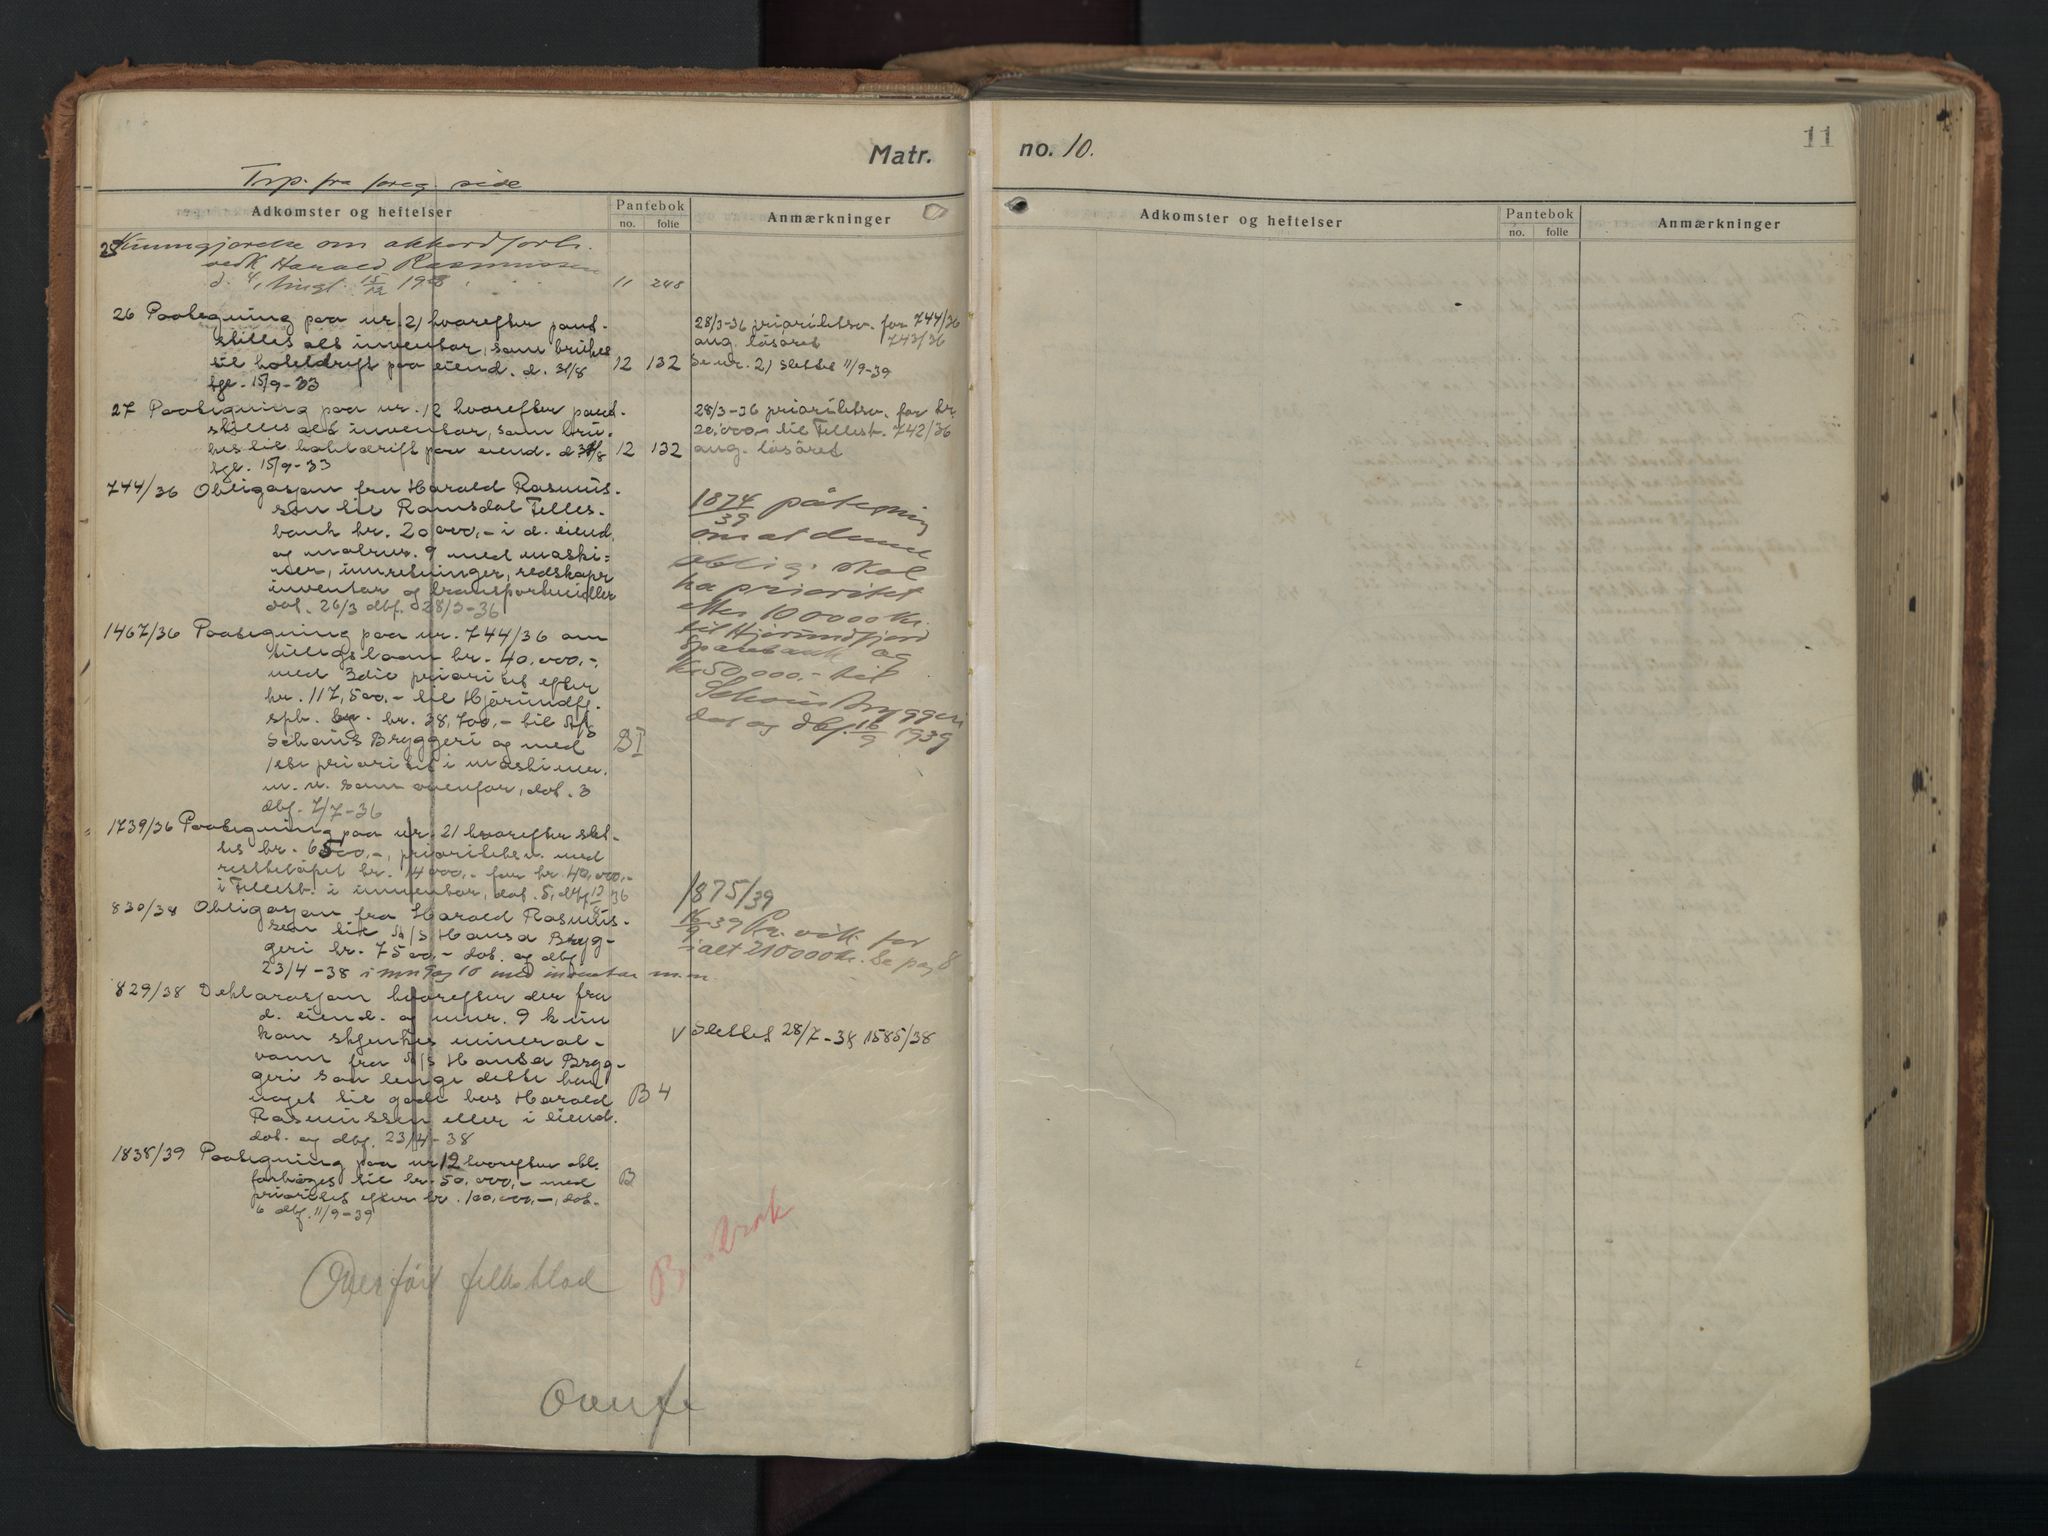 Matr. no. 10.
11
Trp. fra foreg. side
Adkomster og heftelser
Pantebok
no. folie
Anmærkninger
25 Kunngjørelse om akkordforh.
vedk Harald Rasmussen
11 248
26 Paategning paa nr. 21 hvorefter pant-
stilles alt inventar, som brukes
til hoteldrift paa eiend. d. 31/8 12 132
tgl. 15/9-33
28/3-36 prioritetsv. for 744/36
ang. løsøret 743/36
Se nr. 21 slettet 11/9-39
27 Paategning paa nr. 12 hvorefter pant-
stilles alt inventar, som bru-
kes til hoteldrift paa eiend. d. 31/8 12 132
tgl. 15/9-33
28/3-36 prioritetsv. for kr.
20,000,- til Fellesb. 742/36
ang. løsøret
744/36 Obligasjon fra Harald Rasmus-
sen til Romsdal Felles-
bank kr. 20,000,- i d. eiend.
og matrnr. 9 med maski-
ner, innretninger, redskaper
inventar og transportmidler
dat. 26/3 dbf. 28/3-36
1874/39 påtegning
om at denne
oblig. skal
ha prioritet
etter 100000 kr.
til Hjørundfjord
sparebank og
kr. 50,000,- til
Schous Bryggeri
dat og dbf. 16/9 1939
1467/36 Paategning paa nr. 744/36 om
tillegslaan kr. 40,000,-
med 3die prioritet efter
kr. 117,500,- til Hjørundfj.
spb. kr. 38,700,- til A/S
Schous Bryggeri og med
1ste prioritet i maskiner,
m. v. som ovenfor, dat. 3
dbf. 7/7-36
BI
1739/36 Paategning paa nr. 21 hvorefter slet-
tes kr. 6500,-, prioritetsv. med
restbeløpet kr. 14000,- for kr. 40,000,-
i Fellesb. i inventar, dat. 5, dbf. 12/8 36
830/38 Obligasjon fra Harald Rasmus-
sen til A/S Hansa Bryg-
geri kr. 7500,- dat. og dbf.
23/4-38 i mnr 9 og 10 med inventar m.m.
1875/39
16/9-39 Pr. vik. for
ialt 210000 kr. Se pag 8
829/38 Deklarasjon hvorefter der fra
d. eiend. og mnr. 9 kun
kan skjenkes mineral-
vann fra A/S Hansa Bryg-
geri saa lenge dette har
noget til gode hos Harald
Rasmussen eller i eiend.
dat. og dbf. 23/4-38
B 4
V slettet 28/7-38 1585/38
1838/39 Paategning paa nr 12 hvorefter obl.
forhøges til kr. 50,000,- med
prioritet efter kr. 100,000,-, dat.
6 dbf. 11/9-39
B
Overført fellesblad
Overf.
Matr. no. 10.
Adkomster og heftelser
Pantebok
no. folie
Anmærkninger